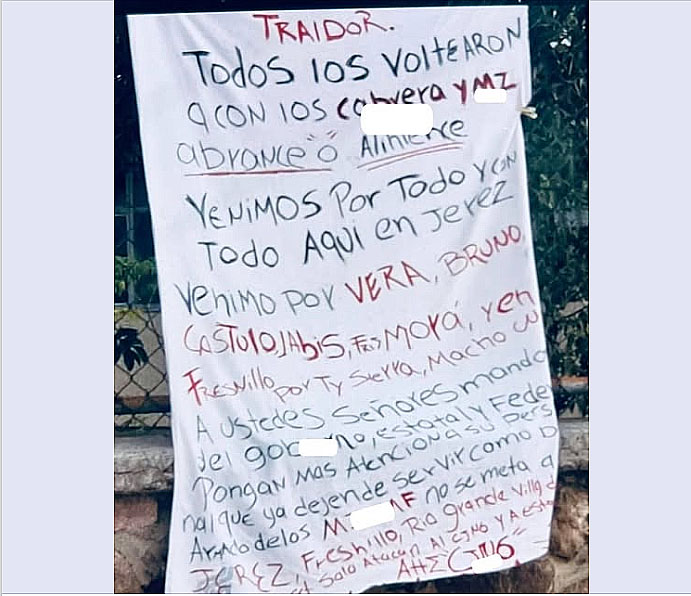 TRAIDOR.
TODOS LOS VOLTEARON
A CON LOS cabrera y MZ
abrance "o" Alinience
VENIMOS POR TODO Y CON
TODO AQUI en Jerez
venimo por VERA, BRUNO,
CASTULO, JAbis, MORA, y en
FRESNillo, por Ty Sierra, Macho
A USTEDES Señores mando
del gob no, estatal y Fede
Pongan MAS Atencion a su Pers
nal que ya dejende servir como
Armado de los M F no se meta
JEREZ, Fresnillo, Rio Grande Villa d
Solo Atacan Al